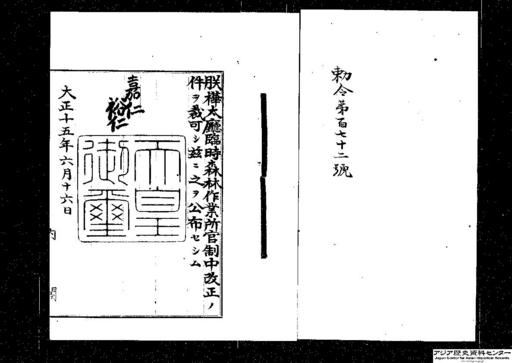 勅令第百七十二號
朕樺太廳臨時森林作業所官制中改正ノ
件ヲ裁可シ茲ニ之ヲ公布セシム
嘉仁
裕仁
天皇
御璽
大正十五年六月十六日
内閣
アジア歴史資料センター
Japan Center for Asian Historical Records